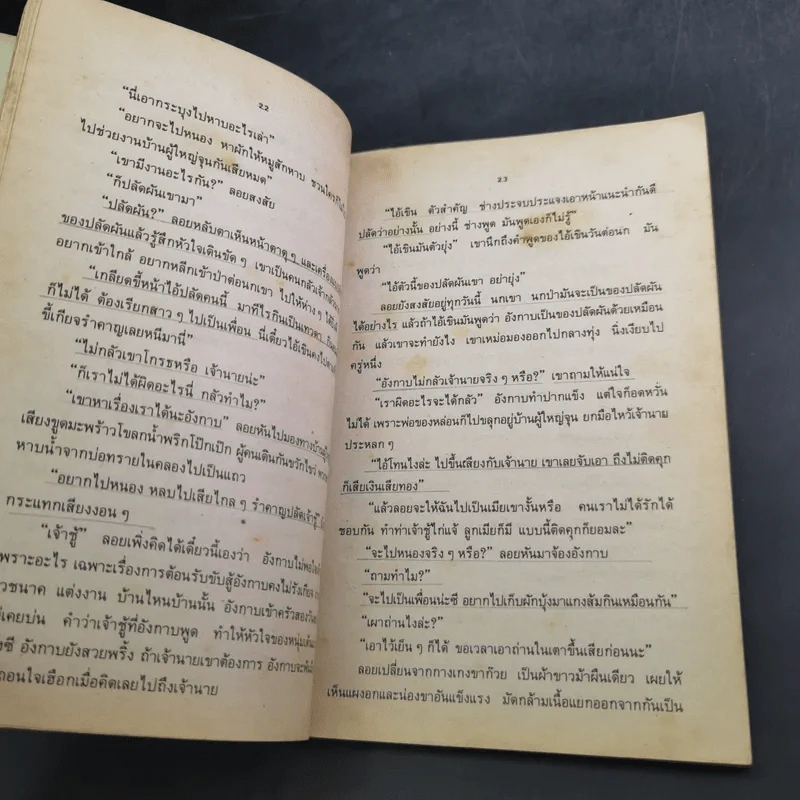 22
“นี่เอากระบุงไปหาบอะไรเล่า”
“อยากจะไปหนอง หาผักให้หมูสักหาบ ชวนใคร
ไปช่วยงานบ้านผู้ใหญ่จุนกันเสียหมด”
“เขามีงานอะไรกัน?” ลอยสงสัย
“ก็ปลัดผันเขามา”
“ปลัดผัน?” ลอยหลับตาเห็นหน้าดาดุ ๆ และเครื่อง
ของปลัดผันแล้วรู้สึกหัวใจเดินขัด ๆ เขาเป็นคนกลัวเจ้า
อยากเข้าใกล้ อยากหลีกเข้าป่าต่อนกเขา ไปให้ห่าง ๆ
“เกลียดขี้หน้าไอ้ปลัดคนนี้ มาทีไรกินเป็นเทวดา
ก็ไม่ได้ ต้องเรียกสาว ๆ ไปเป็นเพื่อน นี่เดี๋ยวไอ้เชิน
ขี้เกียจรำคาญเลยหนีมานี่”
“ไม่กลัวเขาโกรธหรือ เจ้านายน่ะ”
“ก็เราไม่ได้ผิดอะไรนี่ กลัวทำไม?”
“เขาหาเรื่องเราได้นะอังกาบ” ลอยหันไปมองทางบ้าน
เสียงขูดมะพร้าวโขลกน้ำพริกโป๊กเป๊ก ผู้คนเดินกันขวักไขว่
หาบน้ำจากบ่อทรายในคลองไปเป็นแถว
“อยากไปหนอง หลบไปเสียไกล ๆ รำคาญปลัดเจ้าชู้”
กระแทกเสียงงอน ๆ
“เจ้าชู้” ลอยเพิ่งคิดได้เดี๋ยวนี้เองว่า อังกาบไม่พอใจ
เพราะอะไร เฉพาะเรื่องการต้อนรับขับสู้อังกาบคงไม่รังเกียจ
บวชนาค แต่งงาน บ้านไหนบ้านนั้น อังกาบเข้าครัว
ไม่เคยบ่น คำว่าเจ้าชู้ที่อังกาบพูด ทำให้หัวใจของหนุ่ม
อังกาบยังสวยพริ้ง ถ้าเจ้านายเขาต้องการ อังกาบจะ
ถอนใจเฮือกเมื่อคิดเลยไปถึงเจ้านาย
23
“ไอ้เชิน ตัวสำคัญ ช่างประจบประแจงเอาหน้าแนะนำกันดี
ปลัดว่าอย่างนั้น อย่างนี้ ช่างพูด มันพูดเองก็ไม่รู้”
“ไอ้เชินมันตัวยุ่ง” เขานึกถึงคำพูดของไอ้เชินวันต่อนก มัน
พูดว่า
“ไอ้ตัวนี้ของปลัดผันเขา อย่ายุ่ง”
ลอยยังสงสัยอยู่ทุกวันนี้ นกเขา นกป่ามันจะเป็นของปลัดผัน
ได้อย่างไร แล้วถ้าไอ้เชินมันพูดว่า อังกาบเป็นของปลัดผันด้วยเหมือน
กัน แล้วเขาจะทำยังไง เขาเหม่อมองออกไปกลางทุ่ง นิ่งเงียบไป
ครู่หนึ่ง
“อังกาบไม่กลัวเจ้านายจริง ๆ หรือ?” เขาถามให้แน่ใจ
“เราผิดอะไรจะได้กลัว” อังกาบทำปากแข็ง แต่ใจก็อดหวั่น
ไม่ได้ เพราะพ่อของหล่อนก็ไปขลุกอยู่บ้านผู้ใหญ่จุน ยกมือไหว้เจ้านาย
ประหลก ๆ
“ไอ้โทนไงล่ะ ไปขึ้นเสียงกับเจ้านาย เขาเลยจับเอา ถึงไม่ติดคุก
ก็เสียเงินเสียทอง”
“แล้วลอยจะให้ฉันไปเป็นเมียเขางั้นหรือ คนเราไม่ได้รักได้
ชอบกัน ทำท่าเจ้าชู้ไก่แจ้ ลูกเมียก็มี แบบนี้ติดคุกก็ยอมละ”
“จะไปหนองจริง ๆ หรือ?” ลอยหันมาจ้องอังกาบ
“ถามทำไม?”
“จะไปเป็นเพื่อนน่ะซี อยากไปเก็บผักบุ้งมาแกงส้มกินเหมือนกัน”
“เผาถ่านไงล่ะ?”
“เอาไว้เย็น ๆ ก็ได้ ขอเวลาเอาถ่านในเตาขึ้นเสียก่อนนะ”
ลอยเปลี่ยนจากกางเกงขาก๊วย เป็นผ้าขาวม้าผืนเดียว เผยให้
เห็นแผงอกและน่องขาอันแข็งแรง มัดกล้ามเนื้อแยกออกจากกันเป็น